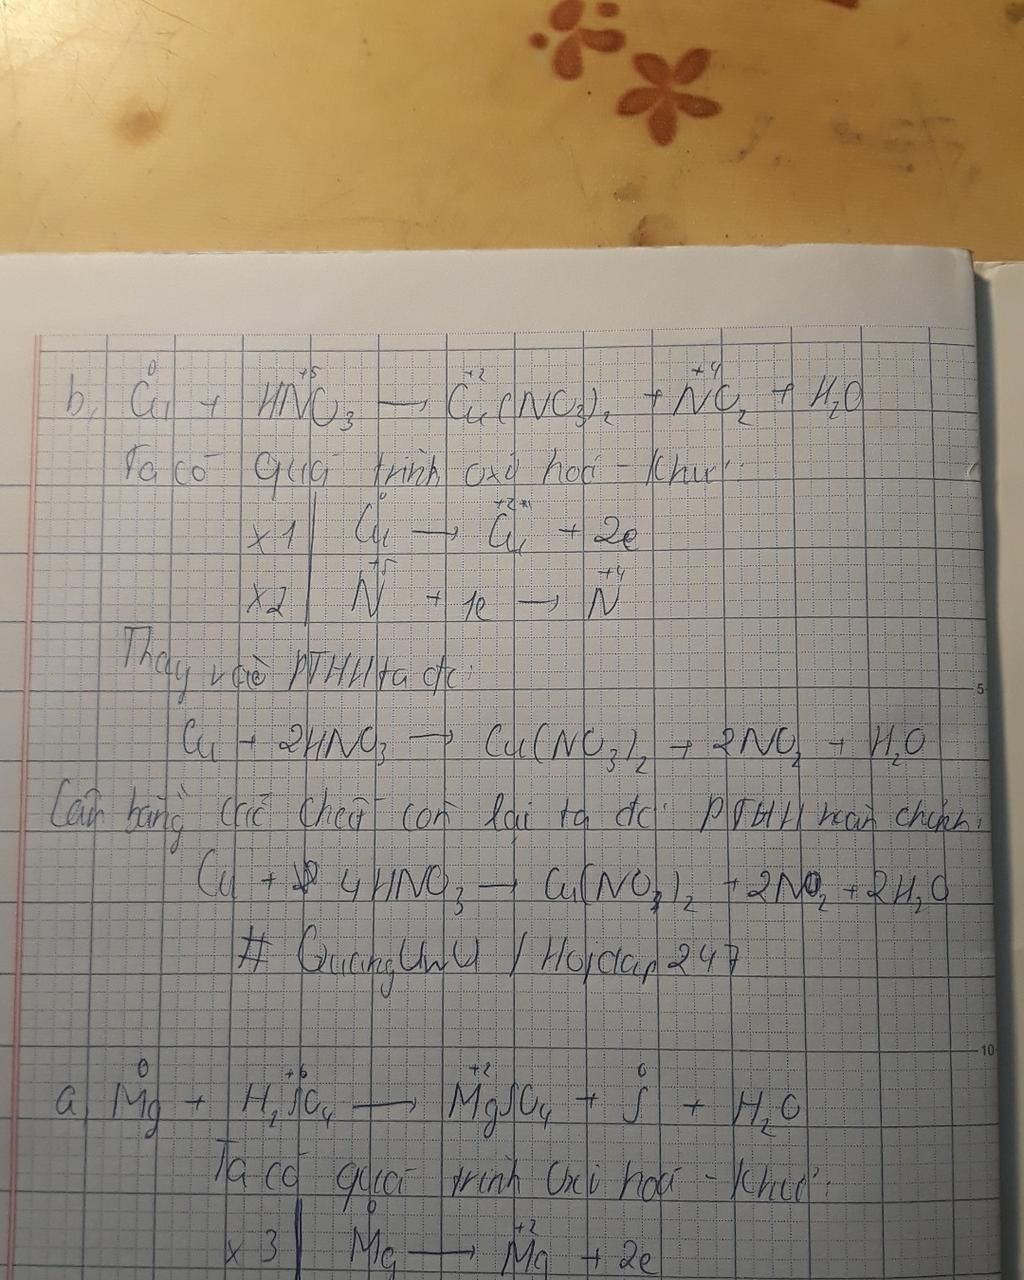 b, Cu⁰ + HN⁺⁵O₃ → Cu⁺²(NO₃)₂ + N⁺⁴O₂ + H₂O
Ta có quá trình oxi hoá - khử:
x1 | Cu⁰ → Cu⁺² + 2e
x2 | N⁺⁵ + 1e → N⁺⁴
Thay vào PTHH ta đc:
Cu + 2HNO₃ → Cu(NO₃)₂ + 2NO₂ + H₂O
Cân bằng các chất còn lại ta đc PTHH hoàn chỉnh:
Cu + 4HNO₃ → Cu(NO₃)₂ + 2NO₂ + 2H₂O
# QuangUwU / Hoidap247
5
10
a, Mg⁰ + H₂S⁺⁶O₄ → Mg⁺²SO₄ + S⁰ + H₂O
Ta có quá trình oxi hoá - khử:
x3 | Mg⁰ → Mg⁺² + 2e